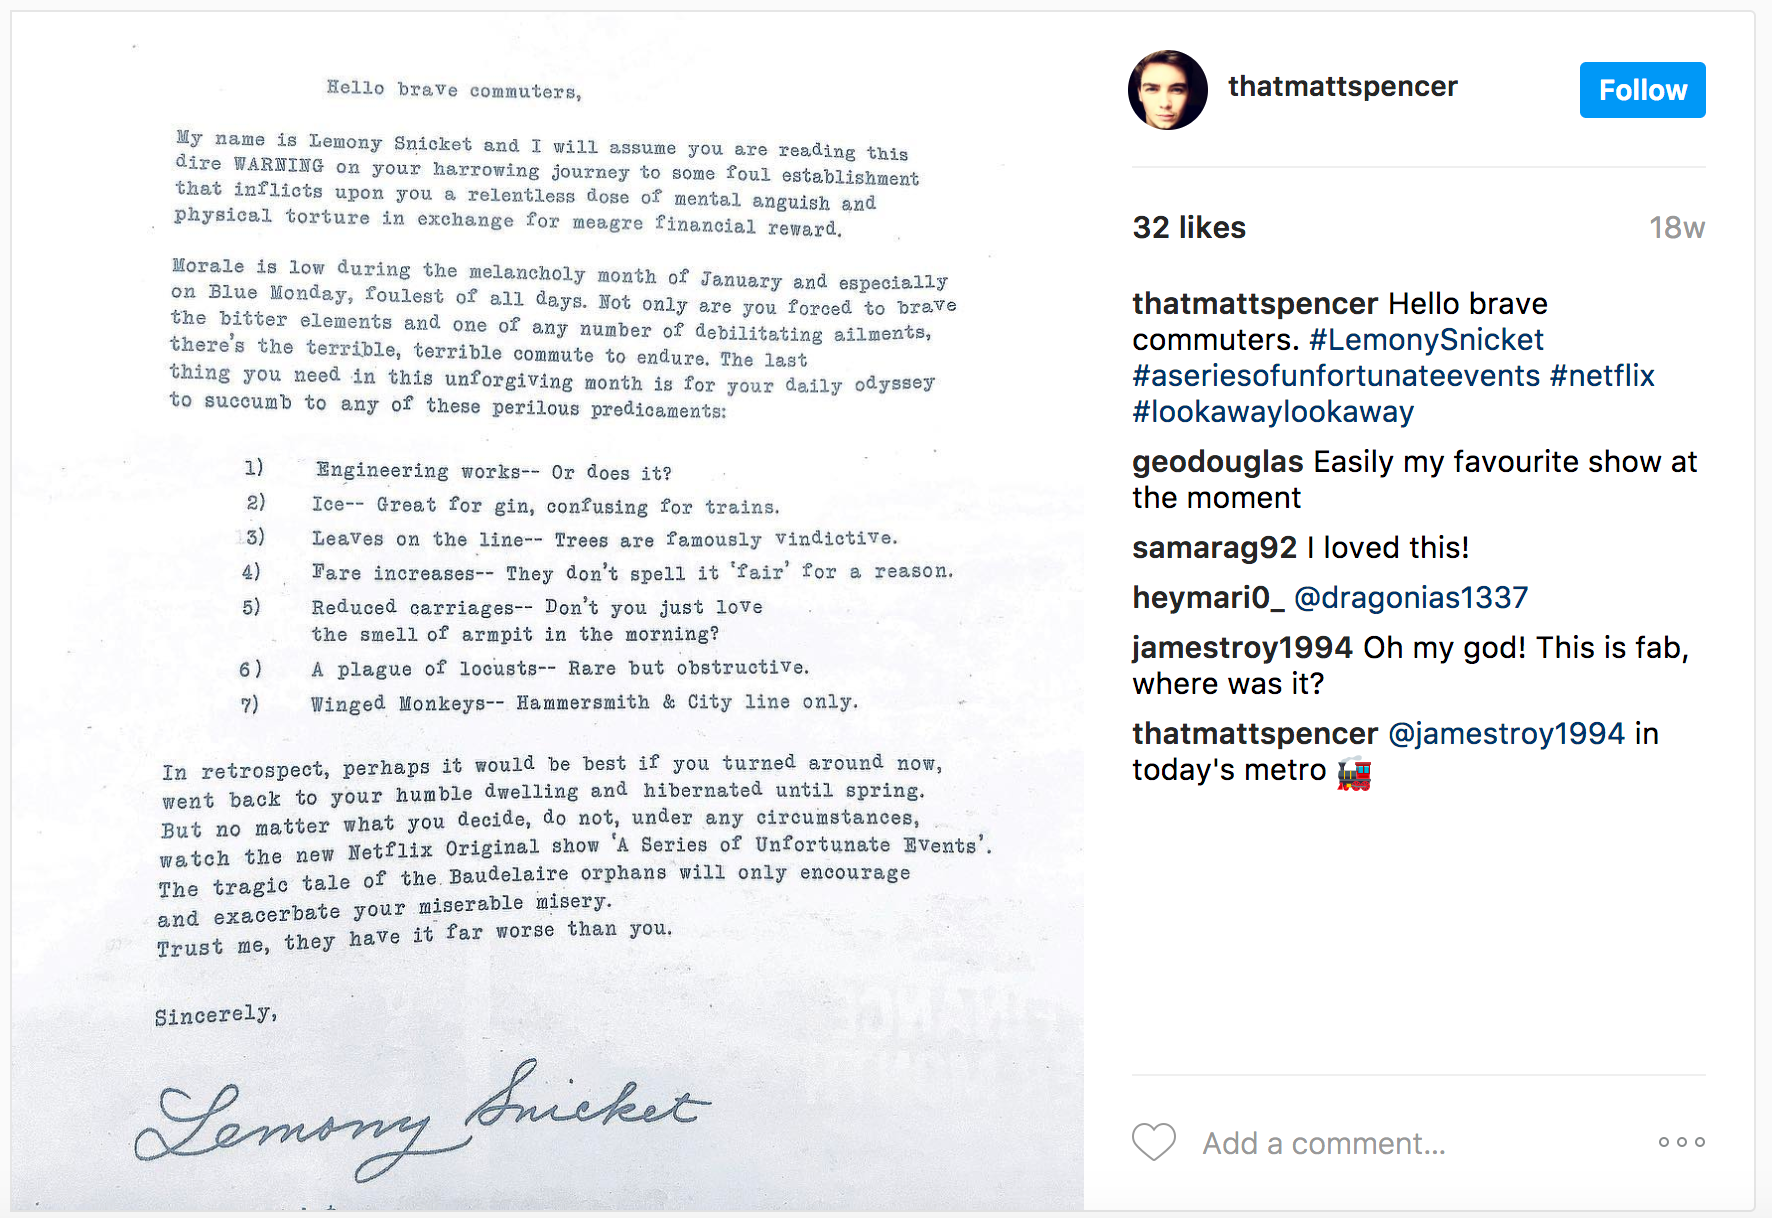 Hello brave commuters,
My name is Lemony Snicket and I will assume you are reading this
dire WARNING on your harrowing journey to some foul establishment
that inflicts upon you a relentless dose of mental anguish and
physical torture in exchange for meagre financial reward.
Morale is low during the melancholy month of January and especially
on Blue Monday, foulest of all days. Not only are you forced to brave
the bitter elements and one of any number of debilitating ailments,
there's the terrible, terrible commute to endure. The last
thing you need in this unforgiving month is for your daily odyssey
to succumb to any of these perilous predicaments:
1) Engineering works-- Or does it?
2) Ice-- Great for gin, confusing for trains.
3) Leaves on the line-- Trees are famously vindictive.
4) Fare increases-- They don't spell it 'fair' for a reason.
5) Reduced carriages-- Don't you just love
the smell of armpit in the morning?
6) A plague of locusts-- Rare but obstructive.
7) Winged Monkeys-- Hammersmith & City line only.
In retrospect, perhaps it would be best if you turned around now,
went back to your humble dwelling and hibernated until spring.
But no matter what you decide, do not, under any circumstances,
watch the new Netflix Original show 'A Series of Unfortunate Events'.
The tragic tale of the Baudelaire orphans will only encourage
and exacerbate your miserable misery.
Trust me, they have it far worse than you.
Sincerely,
Lemony Snicket
thatmattspencer
Follow
32 likes
18w
thatmattspencer Hello brave
commuters. #LemonySnicket
#aseriesofunfortunateevents #netflix
#lookawaylookaway
geodouglas Easily my favourite show at
the moment
samarag92 I loved this!
heymari0_ @dragonias1337
jamestroy1994 Oh my god! This is fab,
where was it?
thatmattspencer @jamestroy1994 in
today's metro 🚂
Add a comment...